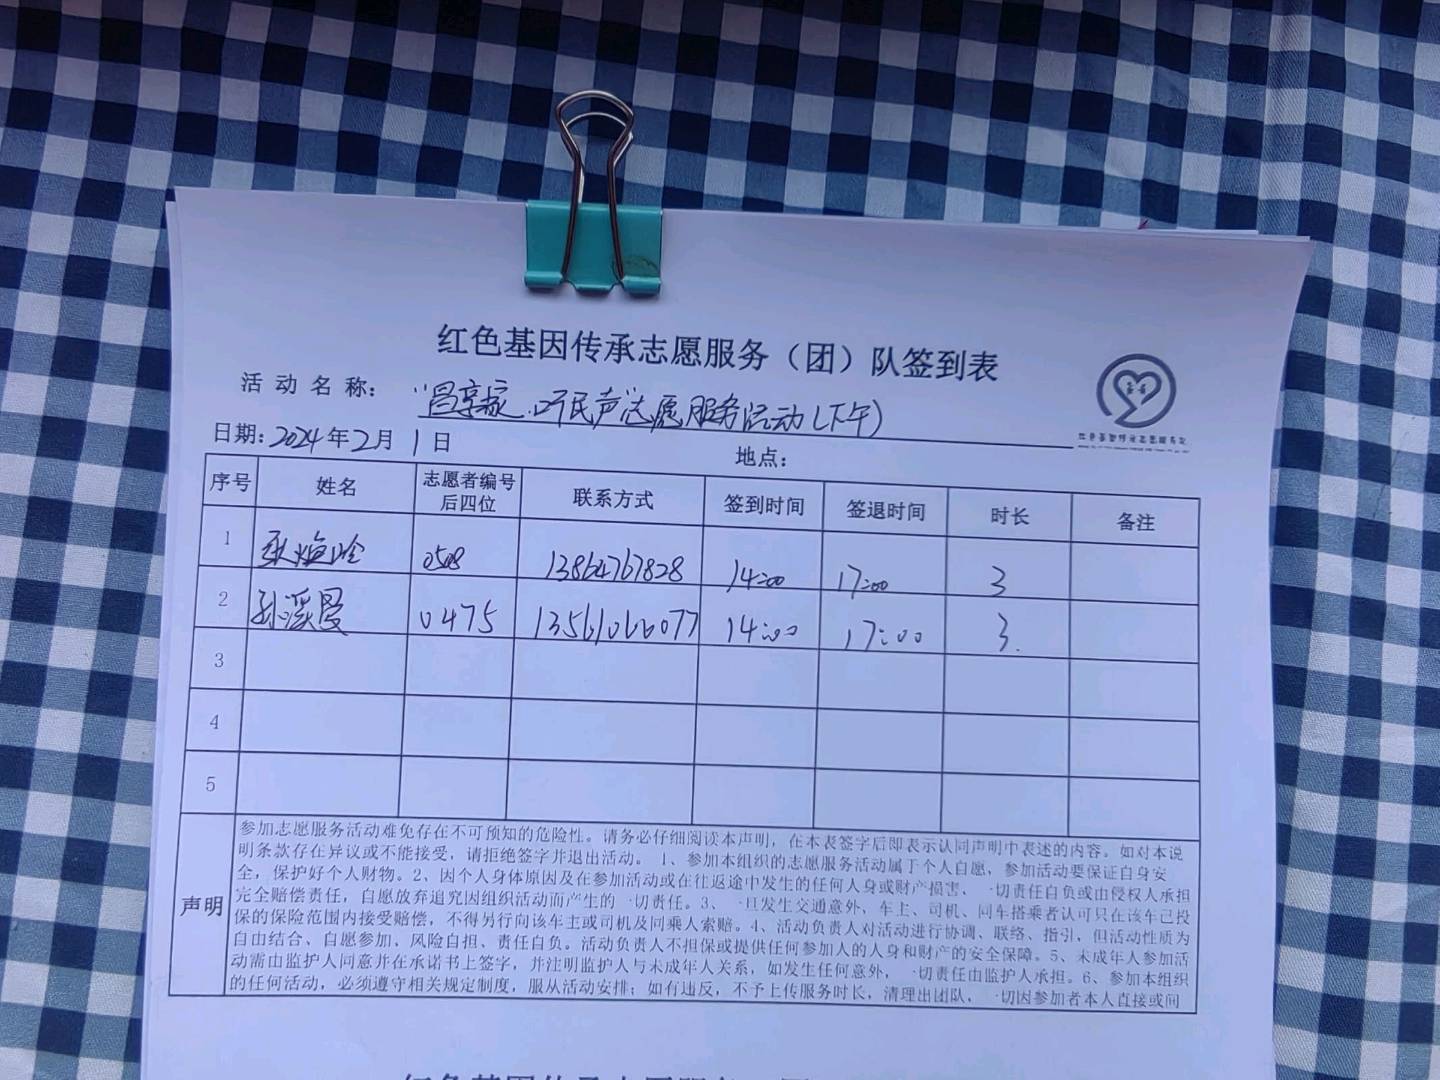 红色基因传承志愿服务（团）队签到表
活动名称：“昌享家.听民声”志愿服务活动(下午)
日期：2024年2月1日 地点：
序号 姓名 志愿者编号后四位 联系方式 签到时间 签退时间 时长 备注
1 0508 13864767828 14:00 17:00 3
2 孙溪曼 0475 13561060077 14:00 17:00 3.
3
4
5
声明
参加志愿服务活动难免存在不可预知的危险性。请务必仔细阅读本声明，在本表签字后即表示认同声明中表述的内容。如对本说
明条款存在异议或不能接受，请拒绝签字并退出活动。 1、参加本组织的志愿服务活动属于个人自愿，参加活动要保证自身安
全，保护好个人财物。2、因个人身体原因及在参加活动或在往返途中发生的任何人身或财产损害、一切责任自负或由侵权人承担
完全赔偿责任，自愿放弃追究因组织活动而产生的一切责任。3、一旦发生交通意外，车主、司机、同车搭乘者认可只在该车已投
保的保险范围内接受赔偿，不得另行向该车主或司机及同乘人索赔。4、活动负责人对活动进行协调、联络、指引，但活动性质为
自由结合、自愿参加、风险自担、责任自负。活动负责人不担保或提供任何参加人的人身和财产的安全保障。5、未成年人参加活
动需由监护人同意并在承诺书上签字，并注明监护人与未成年人关系，如发生任何意外，一切责任由监护人承担。6、参加本组织
的任何活动，必须遵守相关规定制度，服从活动安排；如有违反，不予上传服务时长，清理出团队，一切因参加者本人直接或间